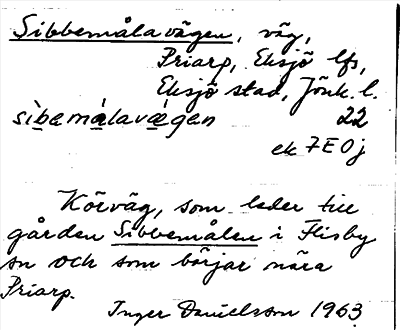 Sibbemålavägen, väg,
Priarp, Eksjö lfs,
Eksjö stad, Jönk. l.
sìbemà̱lavæ̀gen 22
ek 7E0j
Körväg, som leder till
gården Sibbemålen i Flisby
sn och som börjar nära
Priarp.
Inger Danielsson 1963